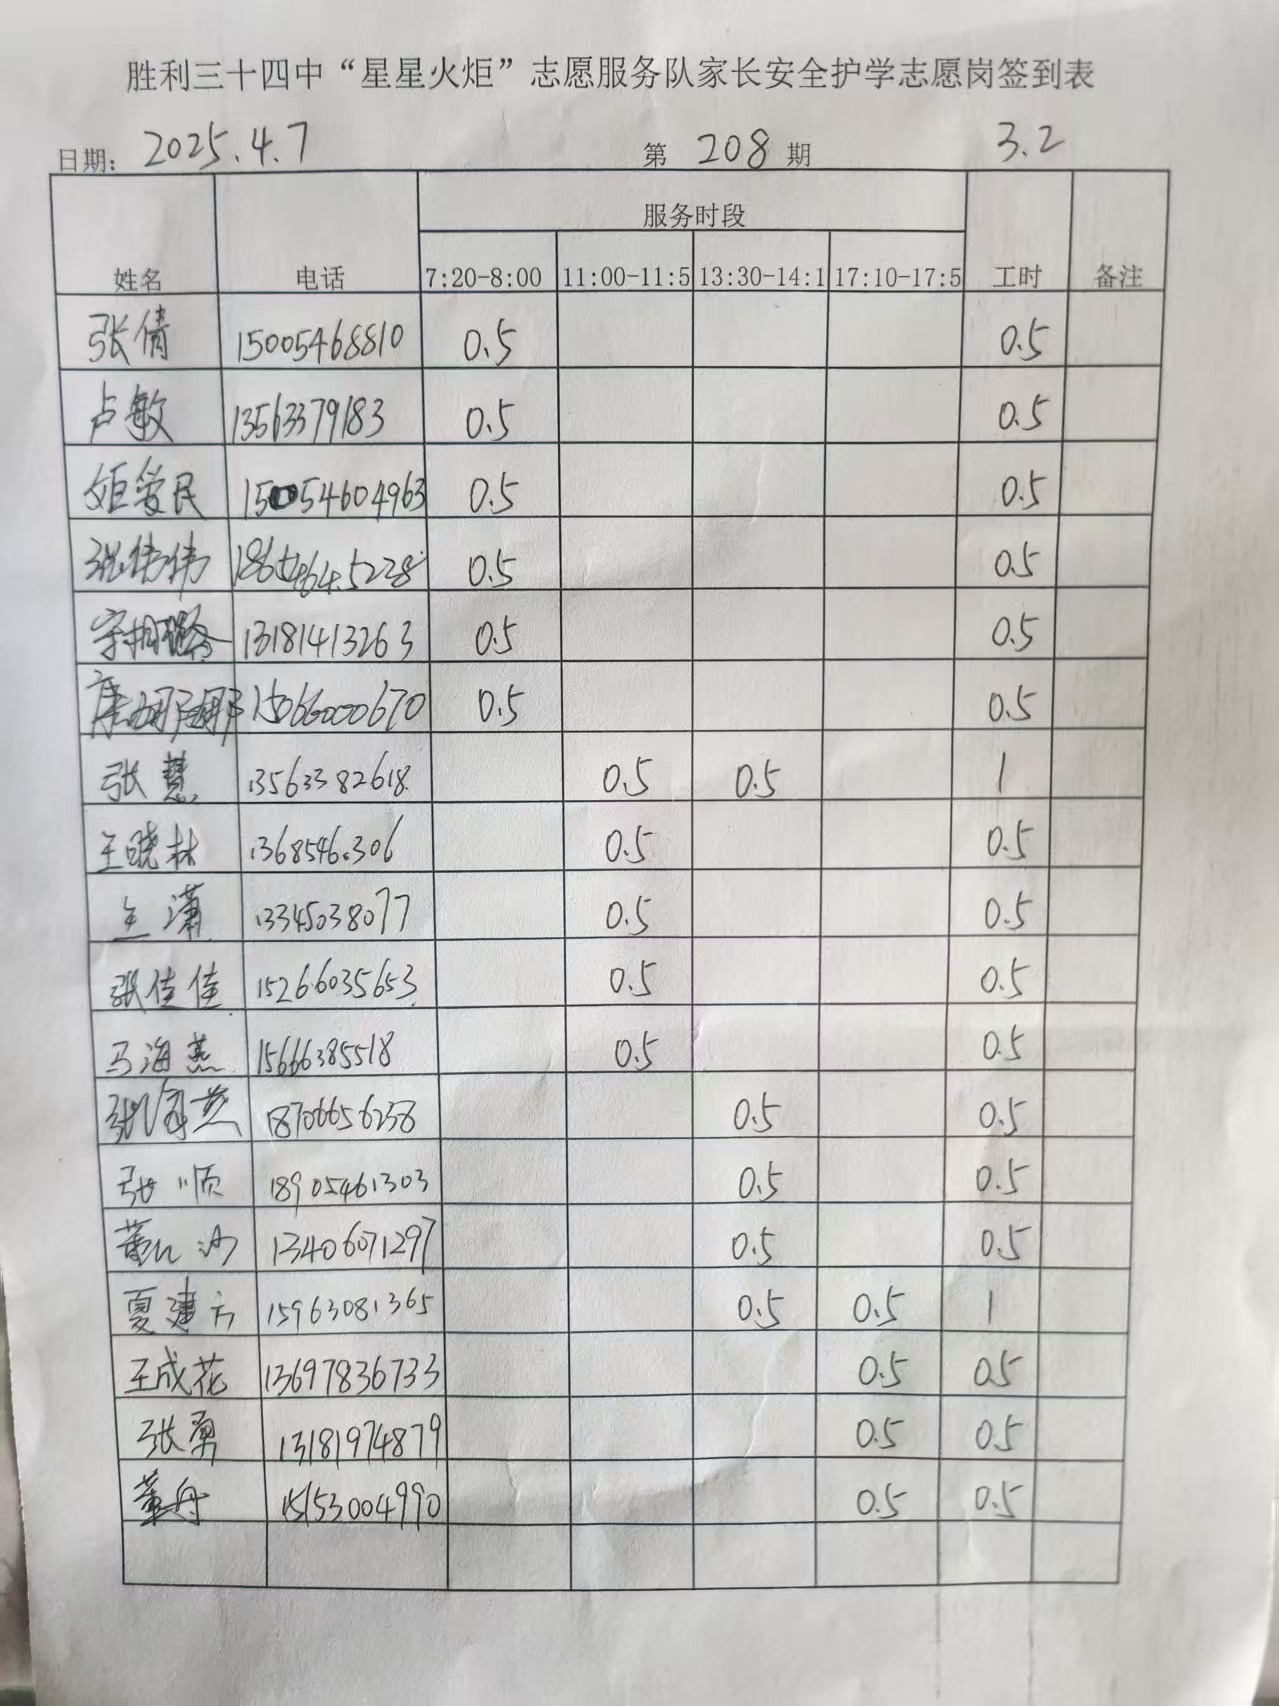 胜利三十四中“星星火炬”志愿服务队家长安全护学志愿岗签到表
日期: 2025.4.7 第 208 期 3.2
服务时段
姓名 电话 7:20-8:00 11:00-11:5 13:30-14:1 17:10-17:5 工时 备注
张倩 15005468810 0.5 0.5
卢敏 13563379183 0.5 0.5
姬爱民 150054604963 0.5 0.5
张伟伟 18654645228 0.5 0.5
13181413263 0.5 0.5
唐娜娜 15066000670 0.5 0.5
张慧 13563382618 0.5 0.5 1
王晓林 0.5 0.5
王潇 13345038077 0.5 0.5
张佳佳 15266035653 0.5 0.5
马海燕 15666385518 0.5 0.5
张海燕 18706656258 0.5 0.5
张顺 18905461303 0.5 0.5
董 沙 13406071297 0.5 0.5
夏建方 15963081365 0.5 0.5 1
王成花 13697836733 0.5 0.5
张勇 13181974879 0.5 0.5
董舟 15153004990 0.5 0.5